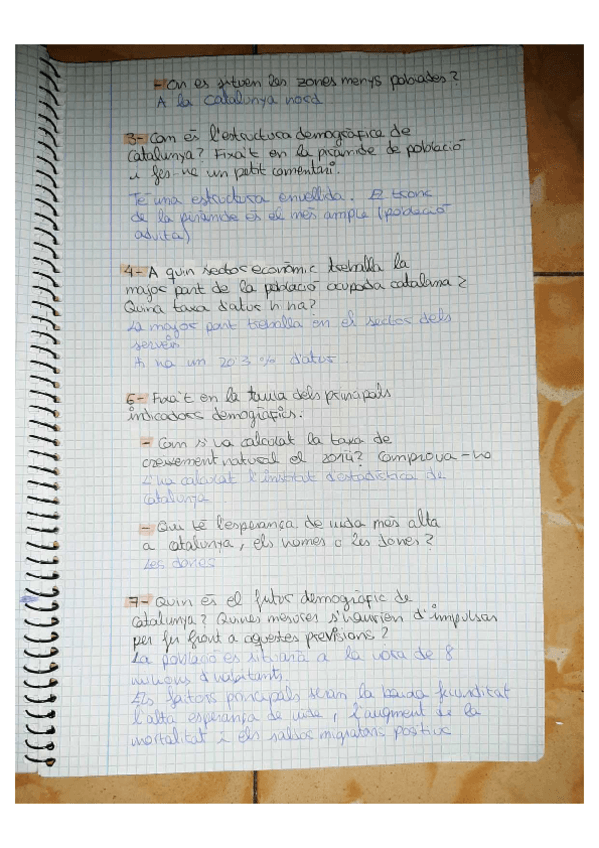 - On es situen les zones menys poblades?
A la Catalunya nord
3- Com és l'estructura demogràfica de
Catalunya? Fixa't en la piràmide de població
i fes-ne un petit comentari.
Té una estructura envellida. El tronc
de la piràmide es el més ample (població
adulta)
4- A quin sector econòmic treballa la
major part de la població ocupada catalana?
Quina taxa d'atur hi ha?
La major part treballa en el sector dels
serveis
Hi ha un 20.3 % d'atur.
6- Fixa't en la taula dels principals
indicadors demogràfics.
- Com s'ha calculat la taxa de
creixement natural el 2014? Comprova-ho
L'ha calculat l'institut d'estadística de
Catalunya
- Qui té l'esperança de vida més alta
a Catalunya, els homes o les dones?
Les dones
7- Quin és el futur demogràfic de
Catalunya? Quines mesures s'haurien d'impulsar
per fer front a aquestes previsions?
La població es situarà a la vora de 8
milions d'habitants.
Els factors principals seran la baixa fecunditat
l'alta esperança de vida, l'augment de la
mortalitat i els saldos migratoris positius